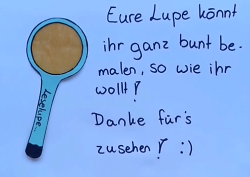 Eure Lupe könnt
ihr ganz bunt be-
malen, so wie ihr
wollt!
Danke für's
zusehen! :)
Leselupe